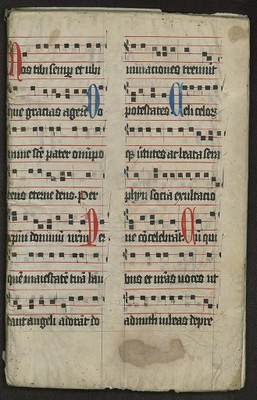 Nos tibi semp et ubi
que gracias agere Do
mine sce pater omipo
tens eterne deus. Per
xpm dominum nrm Per
quem maiestate tua lau
dant angeli adorat do
minaciones tremut
potestates Celi celoru
q virtutes ac beata sera
phyn socia exultacio
ne cocelebrat. Cu qui
bus et nras voces ut
admitti iubeas depre